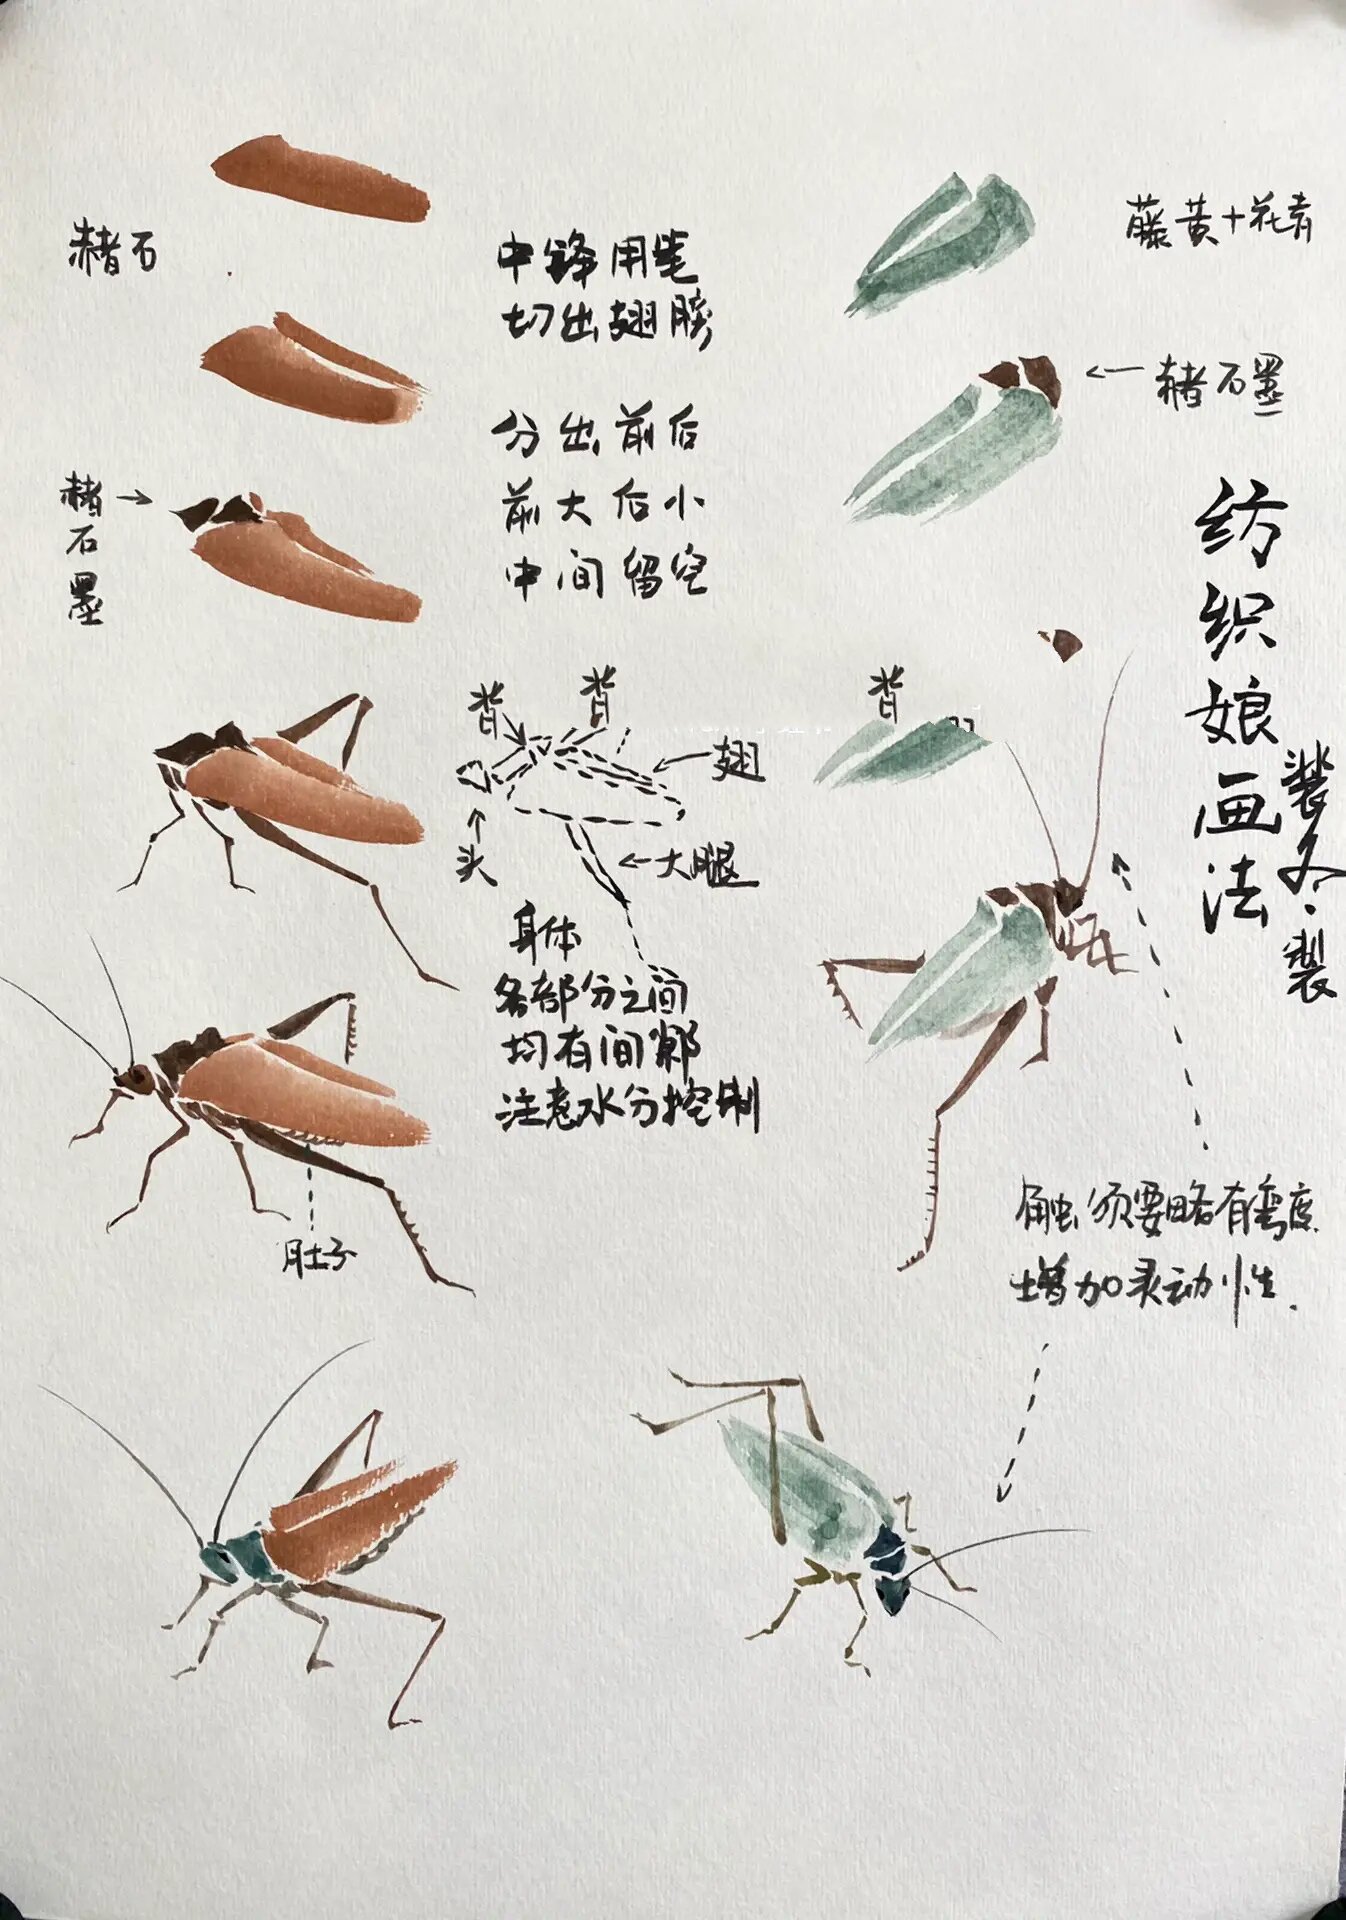 纺织娘画法
裴冬·製
赭石
中锋用笔
切出翅膀
分出前后
前大后小
中间留空
赭石墨
背
背
翅
头
大腿
身体
各部分之间
均有间隙
注意水分控制
肚子
藤黄+花青
赭石墨
背
触须要略有弯度
增加灵动性.